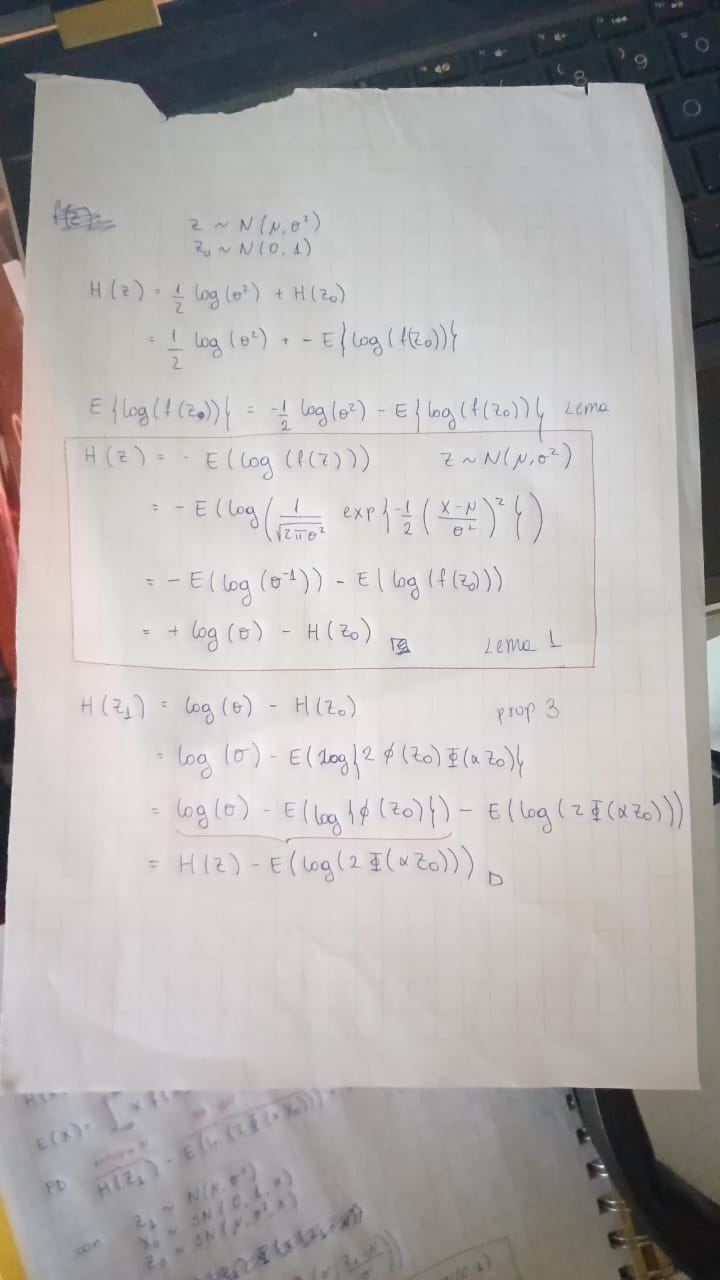 z ~ N(μ,σ²)
z₀ ~ N(0,1)
H(z) = 1/2 log(σ²) + H(z₀)
= 1/2 log(σ²) + - E{log(f(z₀))}
E{log(f(z₀))} = -1/2 log(σ²) - E{log(f(z₀))} Lema
H(z) = - E(log(f(z))) z ~ N(μ,σ²)
= - E(log(1/√2πσ² exp{-1/2 (x-μ/σ²)²})
= - E(log(σ⁻¹)) - E(log(f(z₀)))
= + log(σ) - H(z₀) Lema 1
H(z₁) = log(σ) - H(z₀) prop 3
= log(σ) - E(log{2 φ(z₀) Φ(α z₀)}
= log(σ) - E(log{φ(z₀)}) - E(log(2 Φ(α z₀)))
= H(z) - E(log(2 Φ(α z₀))) □
E(x) =
PD H(z₁) - E(ln(2
con z₁ ~ N(μ,σ²)
x₀ ~ SN(0,1,α)
z₀ ~ SN(μ,σ²,α)